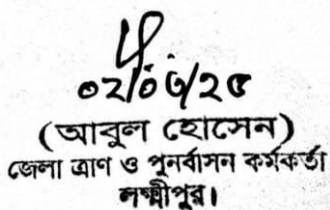 ০২/০৬/২৫
(আবুল হোসেন)
জেলা ত্রাণ ও পুনর্বাসন কর্মকর্তা
লক্ষ্মীপুর।